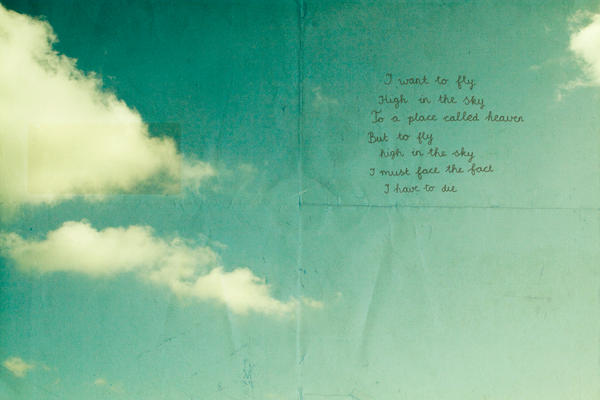 I want to fly
High in the sky
To a place called heaven
But to fly
high in the sky
I must face the fact
I have to die